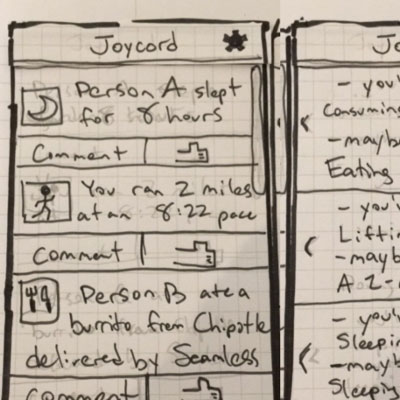 Joycord
Person A slept
for 8 hours
Comment
You ran 2 miles
at an 8:22 pace
Comment
Person B ate a
burrito from Chipotle
delivered by Seamless
Comment
Jo
- you'
Consuming
- mayb
Eating
- you'v
Lifti
- mayb
A 2-
- you'
Sleepin
- mayb
Sleeping